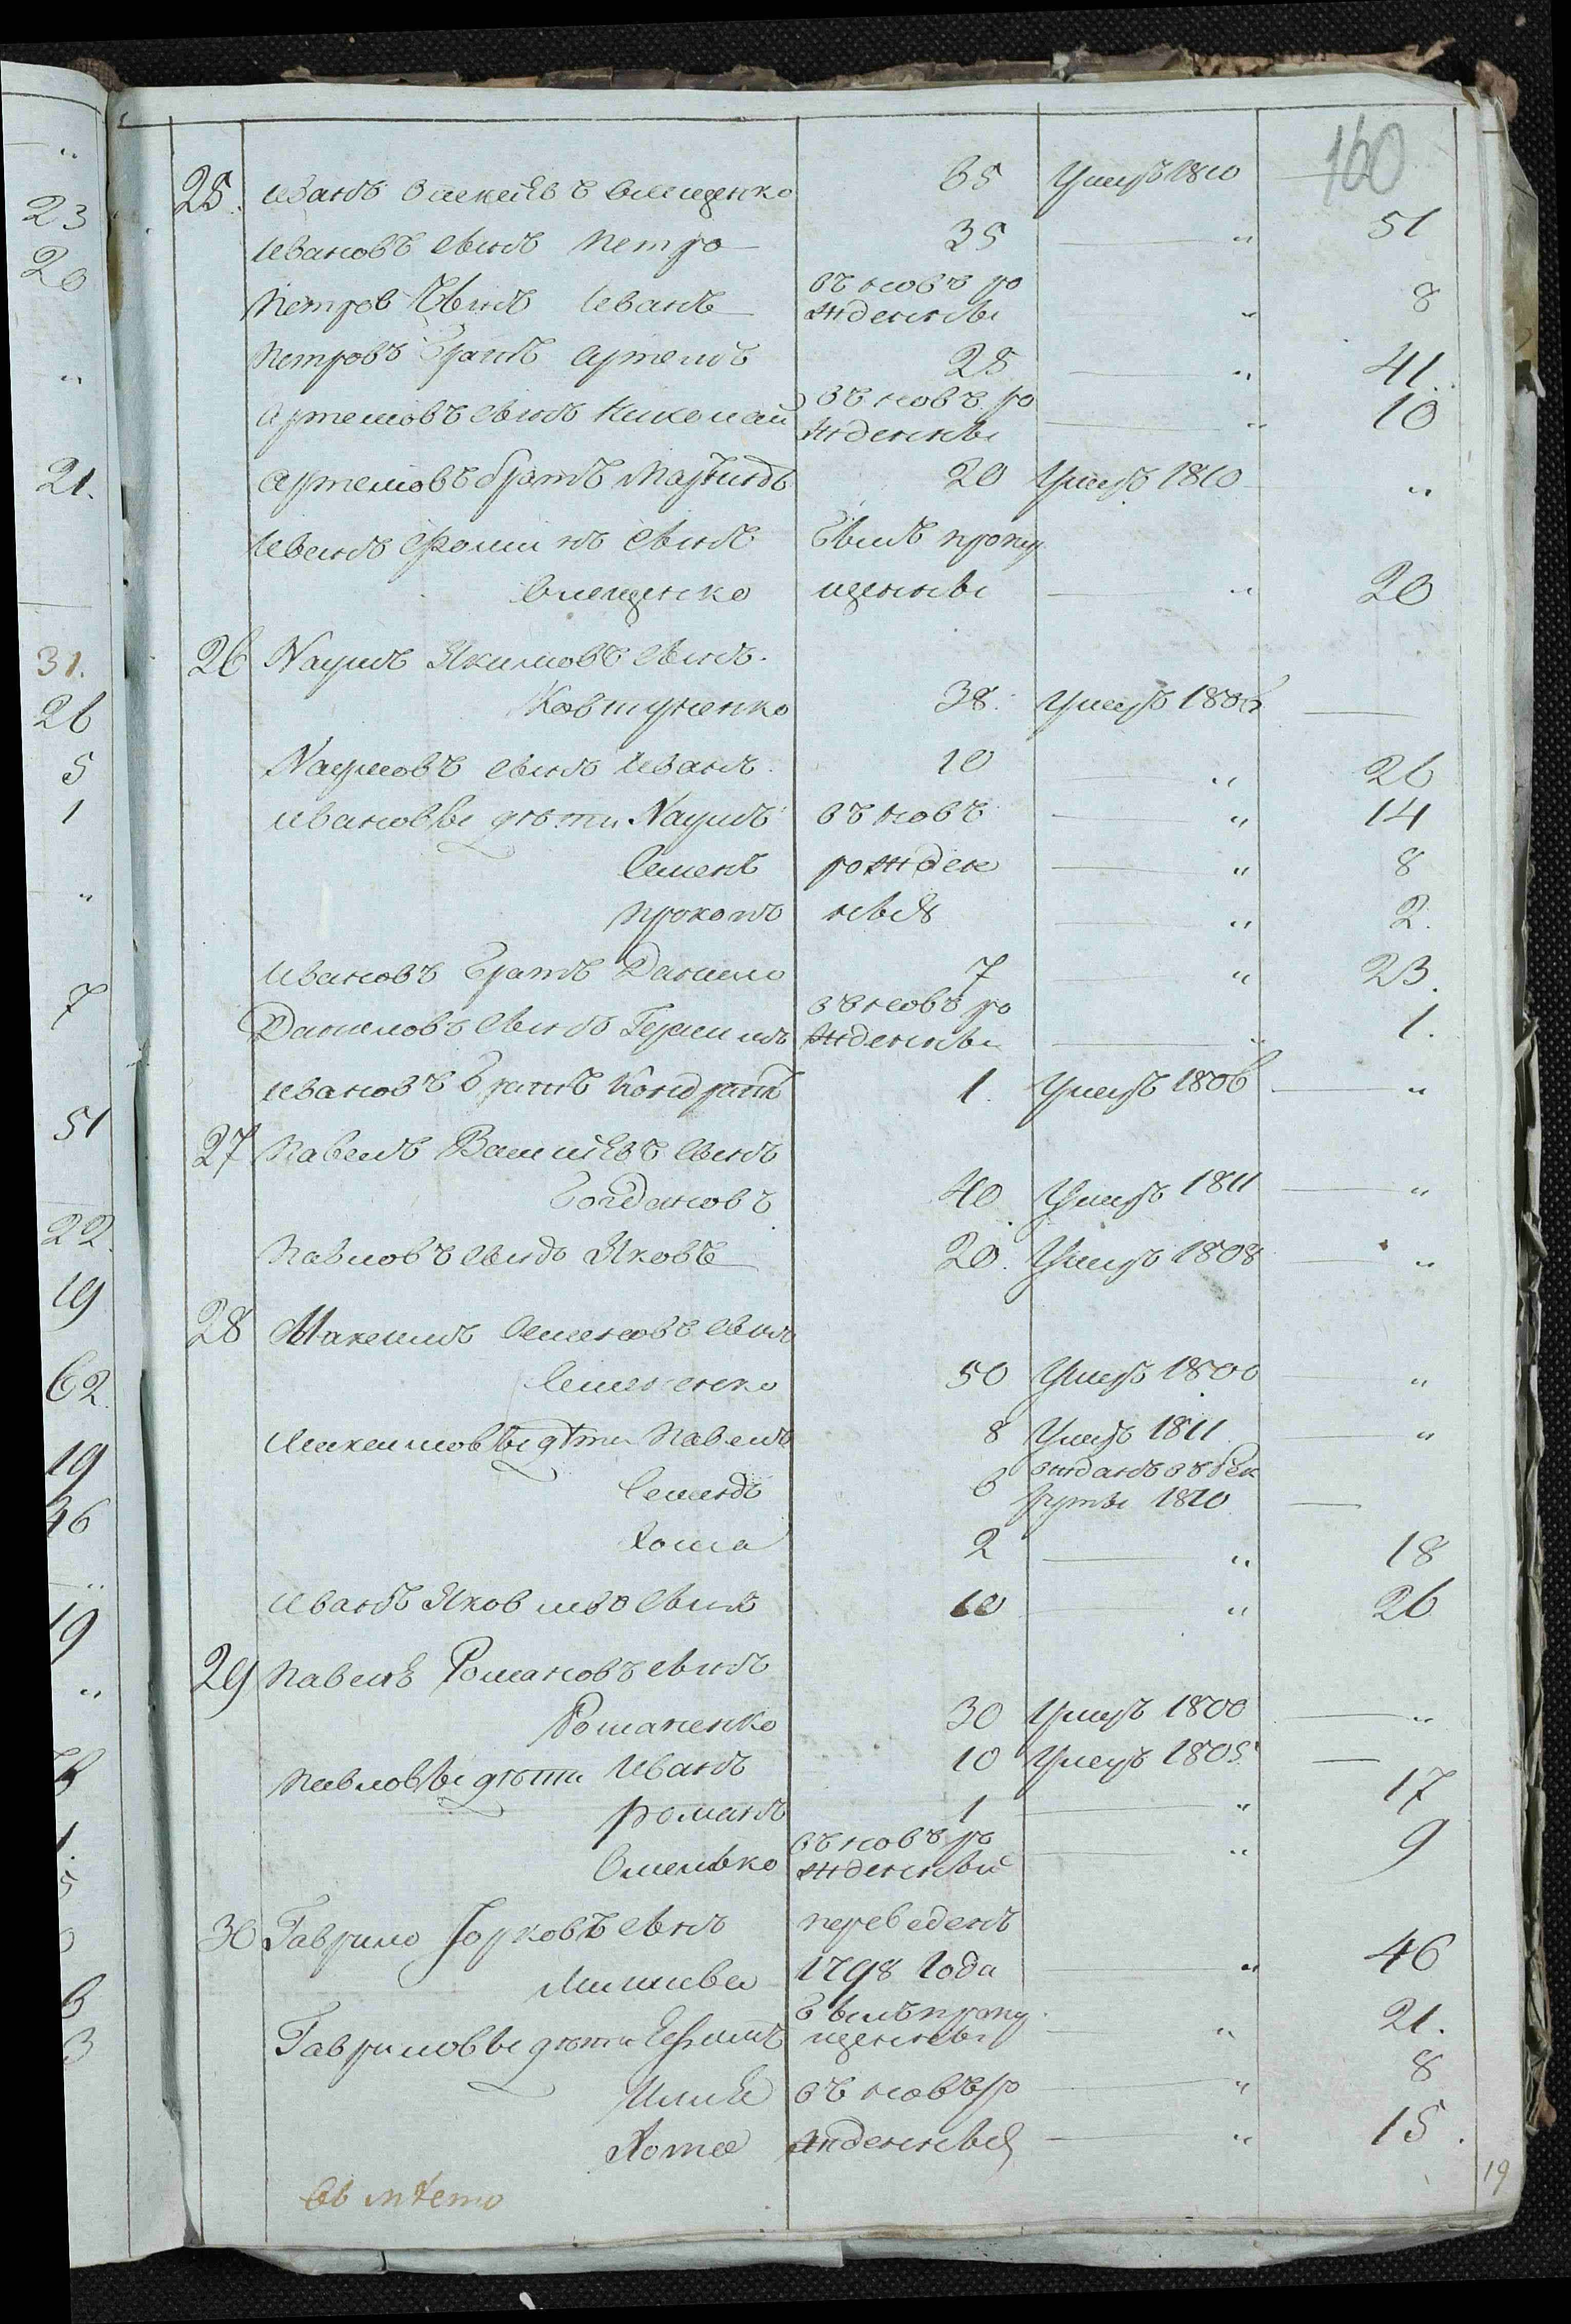 160
25. Иванъ Алексѣевъ Олещенко 65 Умеръ 1810
Ивановъ сынъ Петро 35 — „ 51
Петровъ сынъ Иванъ въновь рожденны — „ 8
Петровъ братъ Артемъ 28 — „ 41
Артемовъ сынъ Николай въновь рожденны — „ 10
Артемовъ братъ Мартинъ 20 Умеръ 1810 „
Иванъ Фоминъ сынъ былъ пропу
Олещенко щенны — „ 20
26 Наумъ Якимовъ сынъ
Ковтуненко 38. Умеръ 1806 —
Наумовъ сынъ Иванъ 10 — „ 26
Ивановы дѣти Наумъ въновь — „ 14
Семенъ рожден — „ 8
Прокопъ ныя — „ 2.
Ивановъ братъ Данило 7 — „ 23.
Даниловъ сынъ Герасимъ въновь рожденны — „ 1.
Ивановъ братъ Кондратъ 1. Умеръ 1806 — „
27 Павелъ Васильевъ сынъ
Богдановъ 40 Умеръ 1811 — „
Павловъ сынъ Яковъ 20. Умеръ 1808 — „
28 Максимъ Семеновъ сынъ
Семененко 50 Умеръ 1800 — „
Максимовы дѣти Павелъ 8 Умеръ 1811 — „
Семенъ 6 отданъ въ рек
руты 1810 —
Хома 2 — „ 18
Иванъ Яковлевъ сынъ 10 — „ 26
29 Павелъ Романовъ сынъ
Романенко 30 Умеръ 1800 — „
Павловы дѣти Иванъ 10 Умеръ 1805 —
Романъ 1 — „ 17
Омелько въновь рожденный — „ 9
30 Гаврило Юрковъ сынъ переведенъ
1798 года — „ 46
Гавриловы дѣти Ефимъ былъ пропущенны — „ 21.
Илья въновь ро — „ 8
Хома жденныя — „ 15.
19